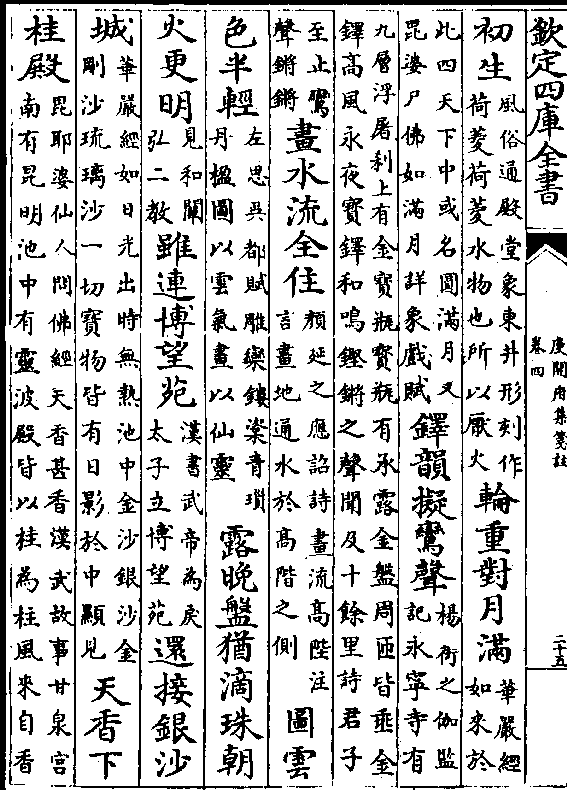 欽定四庫全書
庾開府集箋註
卷四
二十五
初生
風俗通殿堂象東井形刻作
荷菱荷菱水物也所以厭火
輪重對月滿
華嚴經
如來於
此四天下中或名圓滿月又
毘婆尸佛如滿月詳象戲賦
鐸韻擬鸞聲
楊衒之伽監
記永寧寺有
九層浮屠刹上有金寶瓶寶瓶有承露金盤周匝皆垂金
鐸高風永夜寶鐸和鳴鏗鏘之聲聞及十餘里詩君子
至止鸞
聲鏘鏘
畫水流全住
顏延之應詔詩畫流高陛注
言畫地通水於高階之側
圖雲
色半輕
左思吳都賦雕欒鏤楶青瑣
丹楹圖以雲氣畫以仙靈
露晚盤猶滴珠朝
火更明
見和闡
弘二教
雖連博望苑
漢書武帝為戾
太子立博望苑
還接銀沙
城
華嚴經如日光出時無熱池中金沙銀沙金
剛沙琉璃沙一切寶物皆有日影於中顯見
天香下
桂殿
毘耶婆仙人問佛經天香甚香漢武故事甘泉宮
南有昆明池中有靈波殿皆以桂為柱風來自香